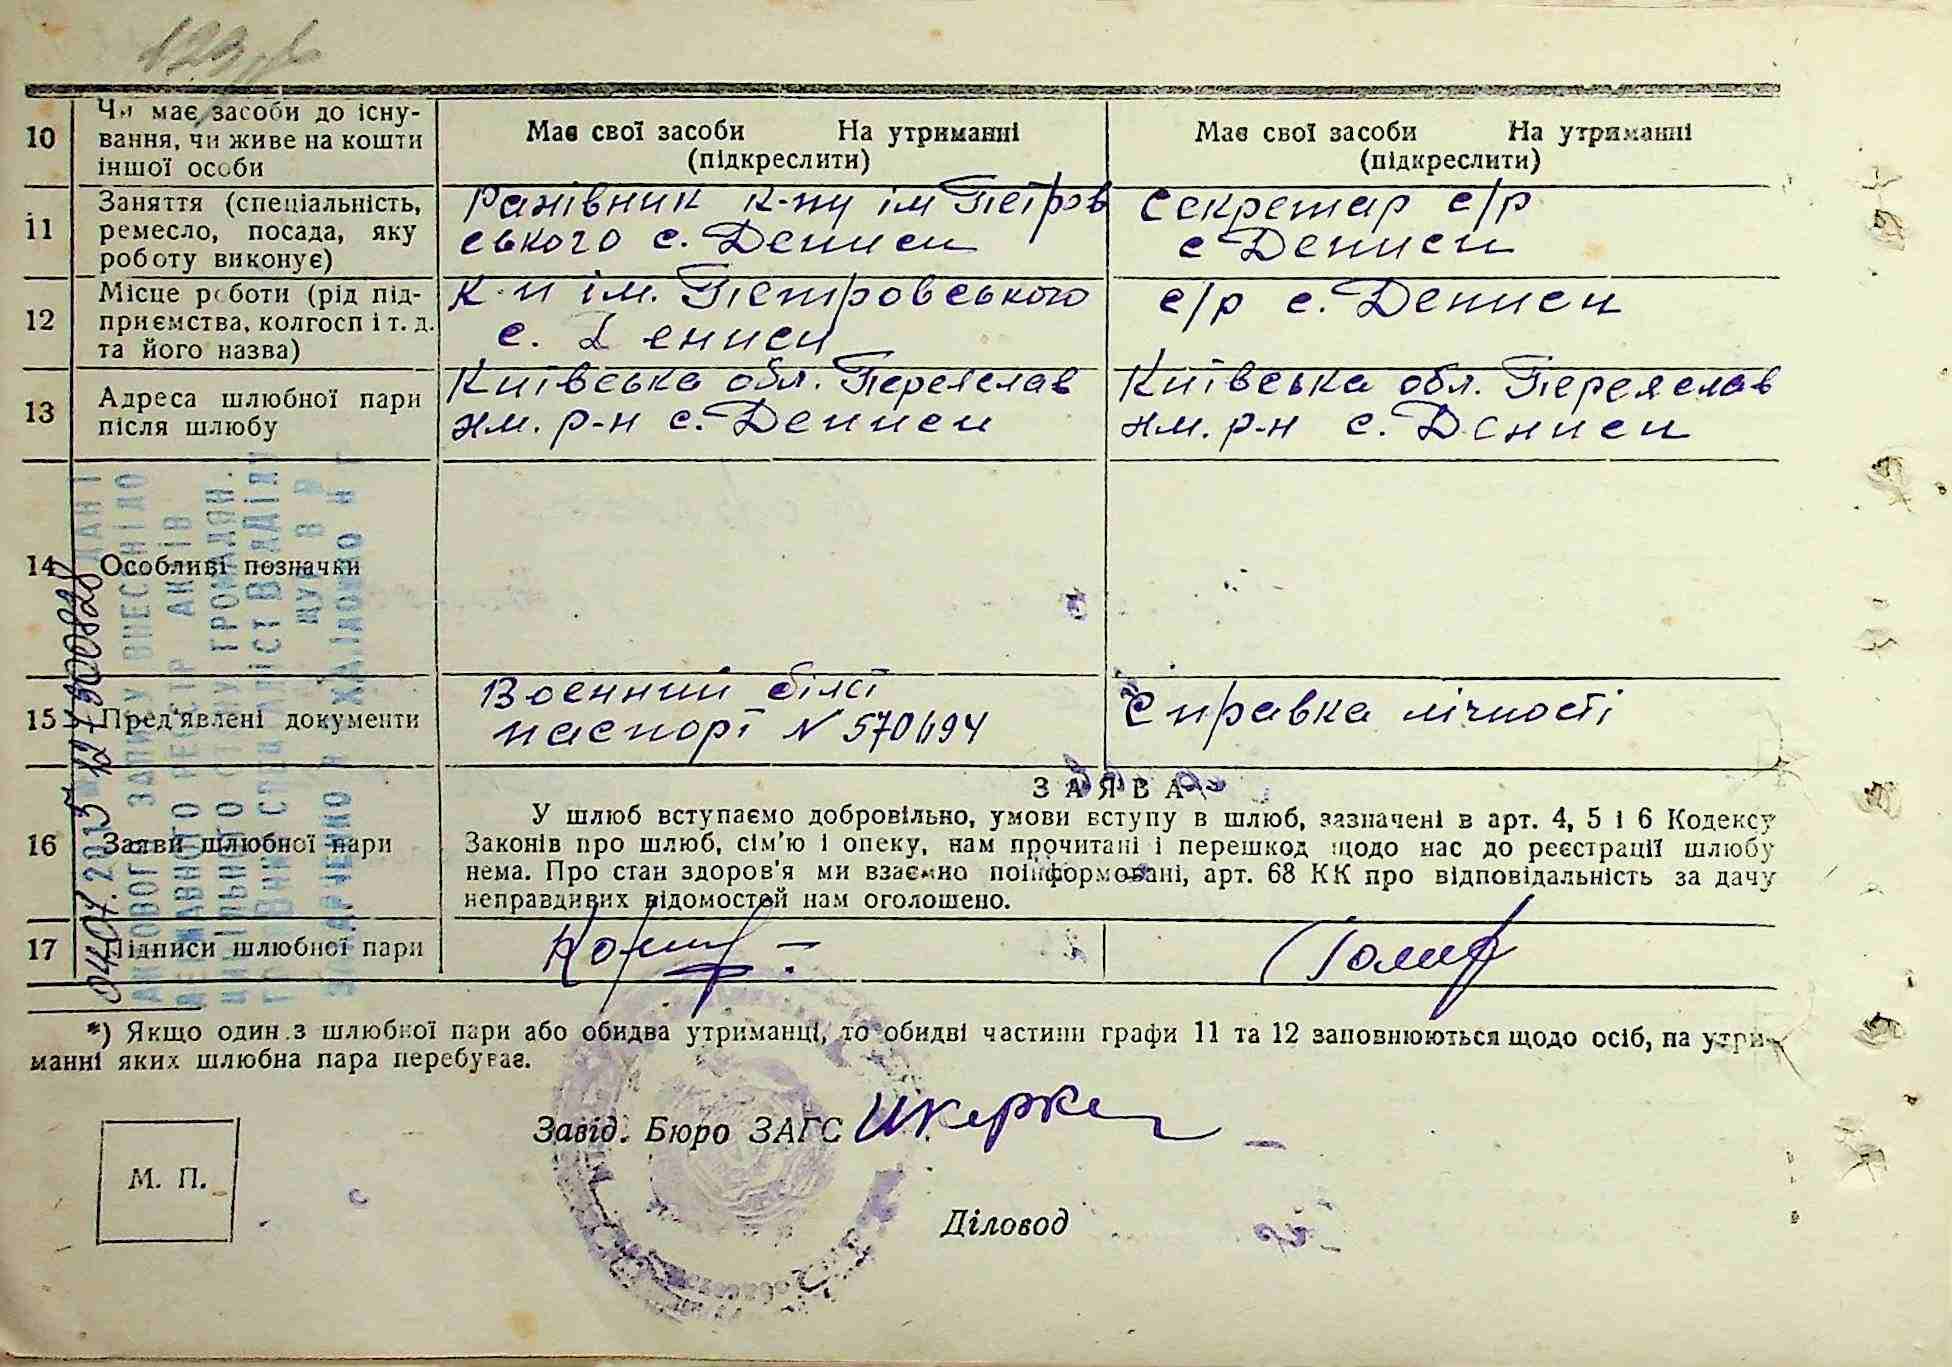 10
Чи має засоби до існу-
вання, чи живе на кошти
іншої особи
Має свої засоби На утриманні
(підкреслити)
Має свої засоби На утриманні
(підкреслити)
11
Заняття (спеціальність,
ремесло, посада, яку
роботу виконує)
к-пу ім Петров
ського с. Дениси
Секретар с/р
с Дениси
12
Місце роботи (рід під-
приємства, колгосп і т. д.
та його назва)
к-п ім. Петровського
с. Дениси
с/р с. Дениси
13
Адреса шлюбної пари
після шлюбу
Київська обл. Переяслав
хм. р-н с. Дениси
Київська обл. Переяслав
хм. р-н с. Дениси
14
Особливі позначки
15
Пред'явлені документи
Военний білєт
паспорт N 570494
Справка лічності
16
Заяви шлюбної пари
ЗАЯВА
У шлюб вступаємо добровільно, умови вступу в шлюб, зазначені в арт. 4, 5 і 6 Кодексу
Законів про шлюб, сім'ю і опеку, нам прочитані і перешкод щодо нас до реєстрації шлюбу
нема. Про стан здоров'я ми взаємно поінформовані, арт. 68 КК про відповідальність за дачу
неправдивих відомостей нам оголошено.
17
Підписи шлюбної пари
*) Якщо один з шлюбної пари або обидва утриманці, то обидві частини графи 11 та 12 заповнюються щодо осіб, на утри-
манні яких шлюбна пара перебуває.
Завід. Бюро ЗАГС
М. П.
Діловод